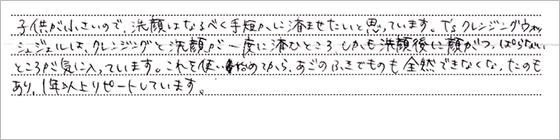 子供が小さいので、洗顔はなるべく手短かに済ませたいと思っています。T'sクレンジングウォッ
シュジェルは、クレンジングと洗顔が一度に済むところ しかも洗顔後に顔がつっぱらない
ところが気に入っています。これを使い始めてから、あごのふきでものも全然できなくなったのも
あり、1年以上リピートしています。